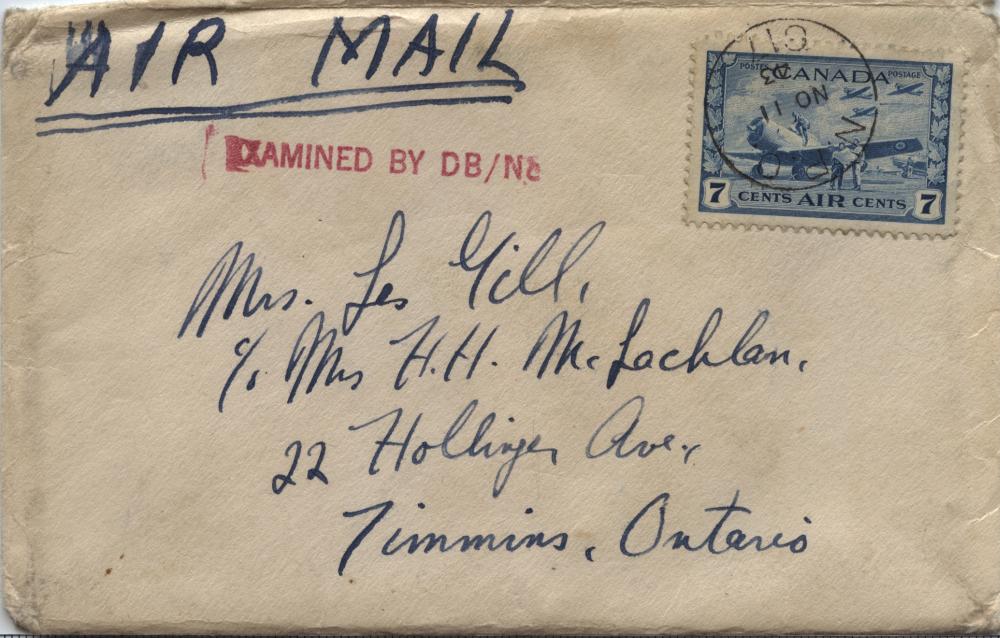 AIR MAIL
EXAMINED BY DB/N8
POSTES CANADA POSTAGE
NO 11
7 CENTS AIR CENTS 7
Mrs. Les Gill,
c/o Mrs H.H. McLachlan,
22 Hollinger Ave.,
Timmins, Ontario